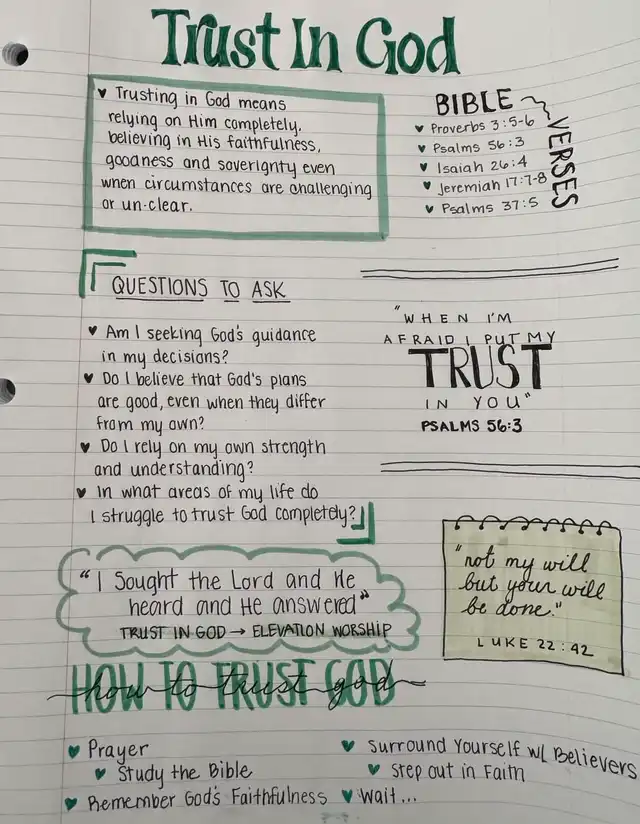 Trust In God
♥ Trusting in God means
relying on Him completely.
believing in His faithfulness,
goodness and soverignty even
when circumstances are challenging
or un-clear.
BIBLE VERSES
♥ Proverbs 3:5-6
♥ Psalms 56:3
♥ Isaiah 26:4
♥ Jeremiah 17:7-8
♥ Psalms 37:5
QUESTIONS TO ASK
♥ Am I seeking God's guidance
in my decisions?
♥ Do I believe that God's plans
are good, even when they differ
from my own?
♥ Do I rely on my own strength
and understanding?
♥ In what areas of my life do
I struggle to trust God completely?
"WHEN I'M
AFRAID I PUT MY
TRUST
IN YOU"
PSALMS 56:3
"I Sought the Lord and He
heard and He answered"
TRUST IN GOD → ELEVATION WORSHIP
"not my will
but your will
be done."
LUKE 22:42
HOW TO TRUST GOD
how to trust god
♥ Prayer
♥ Study the Bible
♥ Remember God's Faithfulness
♥ Surround Yourself w/ Believers
♥ Step out in Faith
♥ Wait...